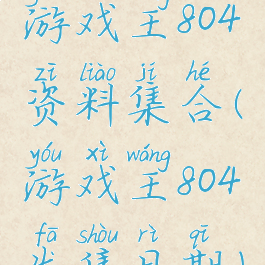 游戏王804
zī liào jí hé
资料集合(
yóu xì wáng
游戏王804
fā shòu rì qī
发售日期)